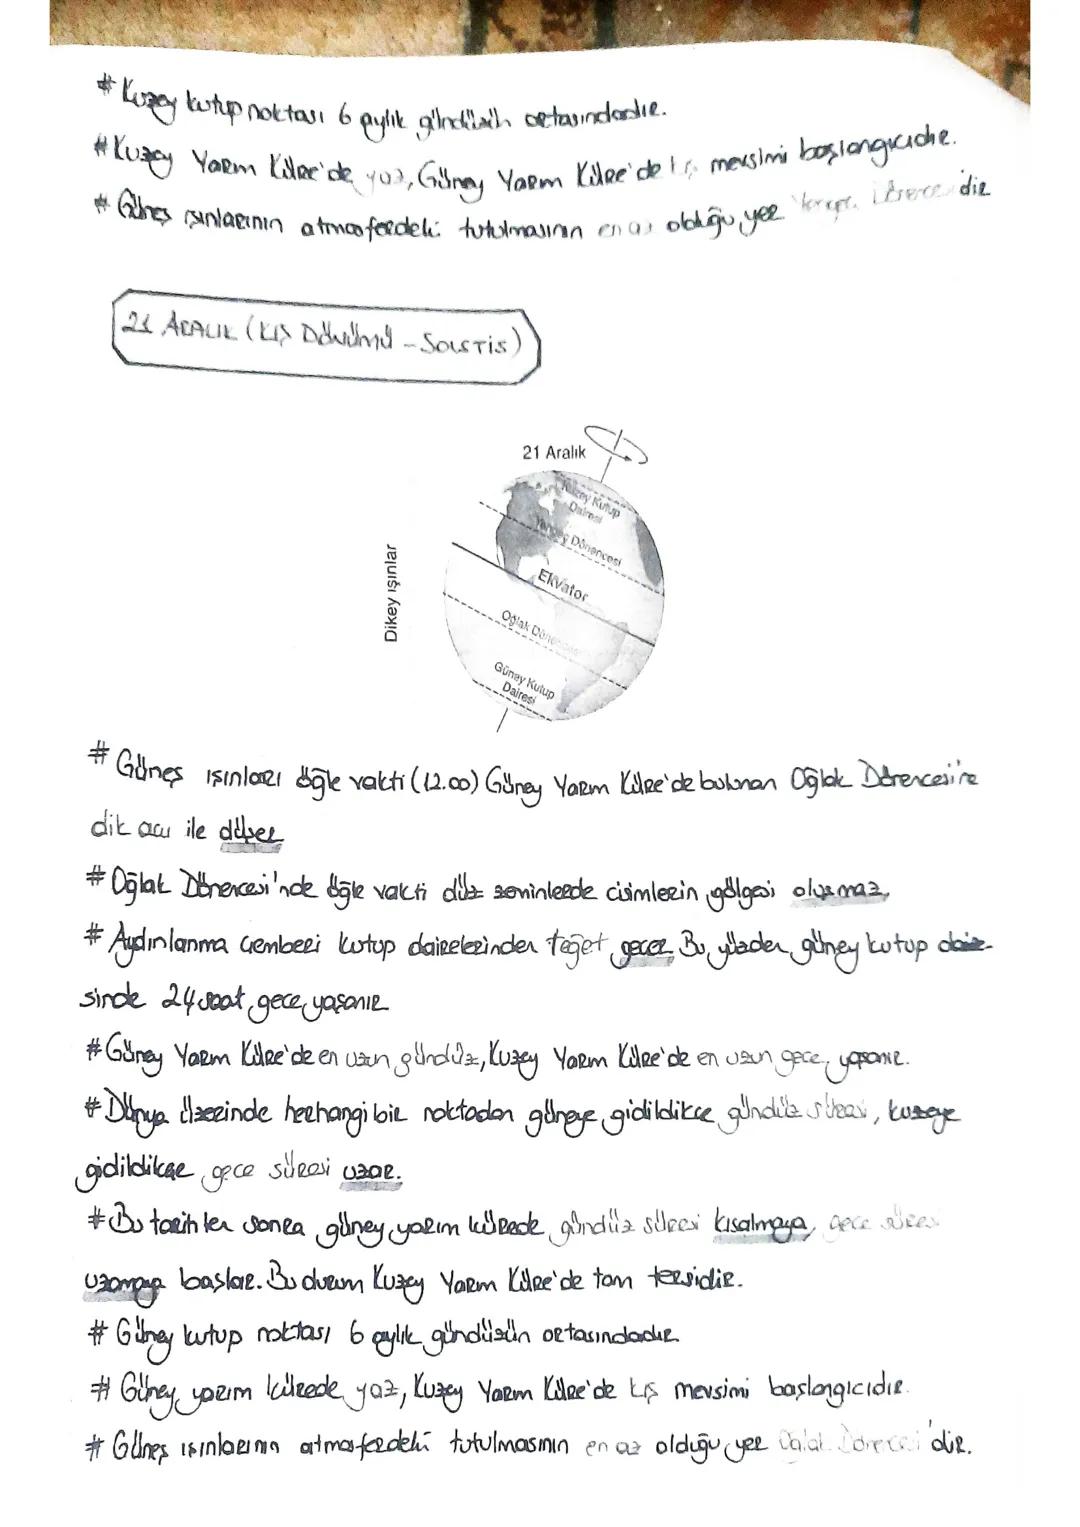 # Kuzey kutup noktası 6 aylık gündüzün ortasındadır.
# Kuzey Yarım Küre'de yaz, Güney Yarım Küre'de kış mevsimi başlangıcıdır.
# Güneş ışınlarının atmosferdeki tutulmasının en az olduğu yer Yengeç Dönencesi'dir
21 ARALIK (KIŞ Dönümü - SOLSTİS)
21 Aralık
Kuzey Kutup
Dairesi
Yengeç Dönencesi
Dikey ışınlar
Ekvator
Oğlak Dönencesi
Güney Kutup
Dairesi
# Güneş ışınları öğle vakti (12.00) Güney Yarım Küre'de bulunan Oğlak Dönencesi'ne
dik açı ile düşer
# Oğlak Dönencesi'nde öğle vakti düz zeminlerde cisimlerin gölgesi oluşmaz.
# Aydınlanma çemberi kutup dairelerinden teğet geçer. Bu yüzden güney kutup daire-
sinde 24 saat gece yaşanır
# Güney Yarım Küre'de en uzun gündüz, Kuzey Yarım Küre'de en uzun gece yaşanır.
# Dünya üzerinde herhangi bir noktadan güneye gidildikçe gündüz süresi, kuzeye
gidildikçe gece süresi uzar.
# Bu tarihten sonra güney yarım kürede gündüz süresi kısalmaya, gece süresi
uzamaya başlar. Bu durum Kuzey Yarım Küre'de tam tersidir.
# Güney kutup noktası 6 aylık gündüzün ortasındadır
# Güney yarım kürede yaz, Kuzey Yarım Küre'de kış mevsimi başlangıcıdır.
# Güneş ışınlarının atmosferdeki tutulmasının en az olduğu yer Oğlak Dönencesi'dir.